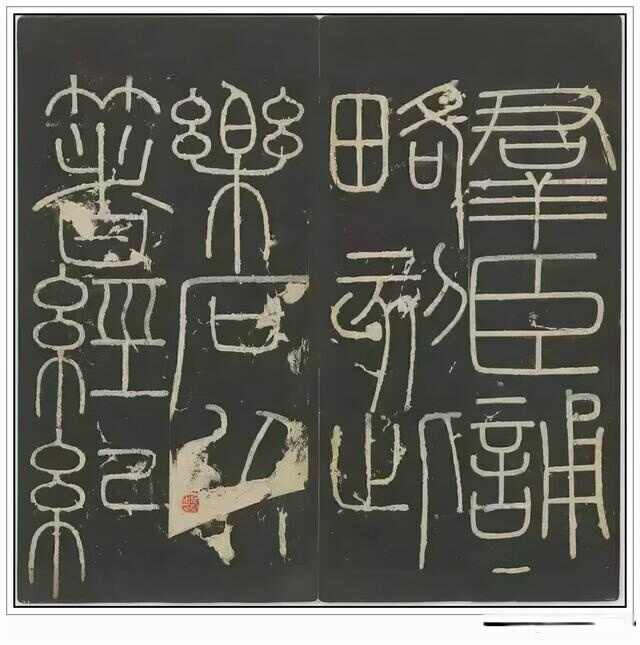 羣臣誦
略刻此
樂石以
著經紀